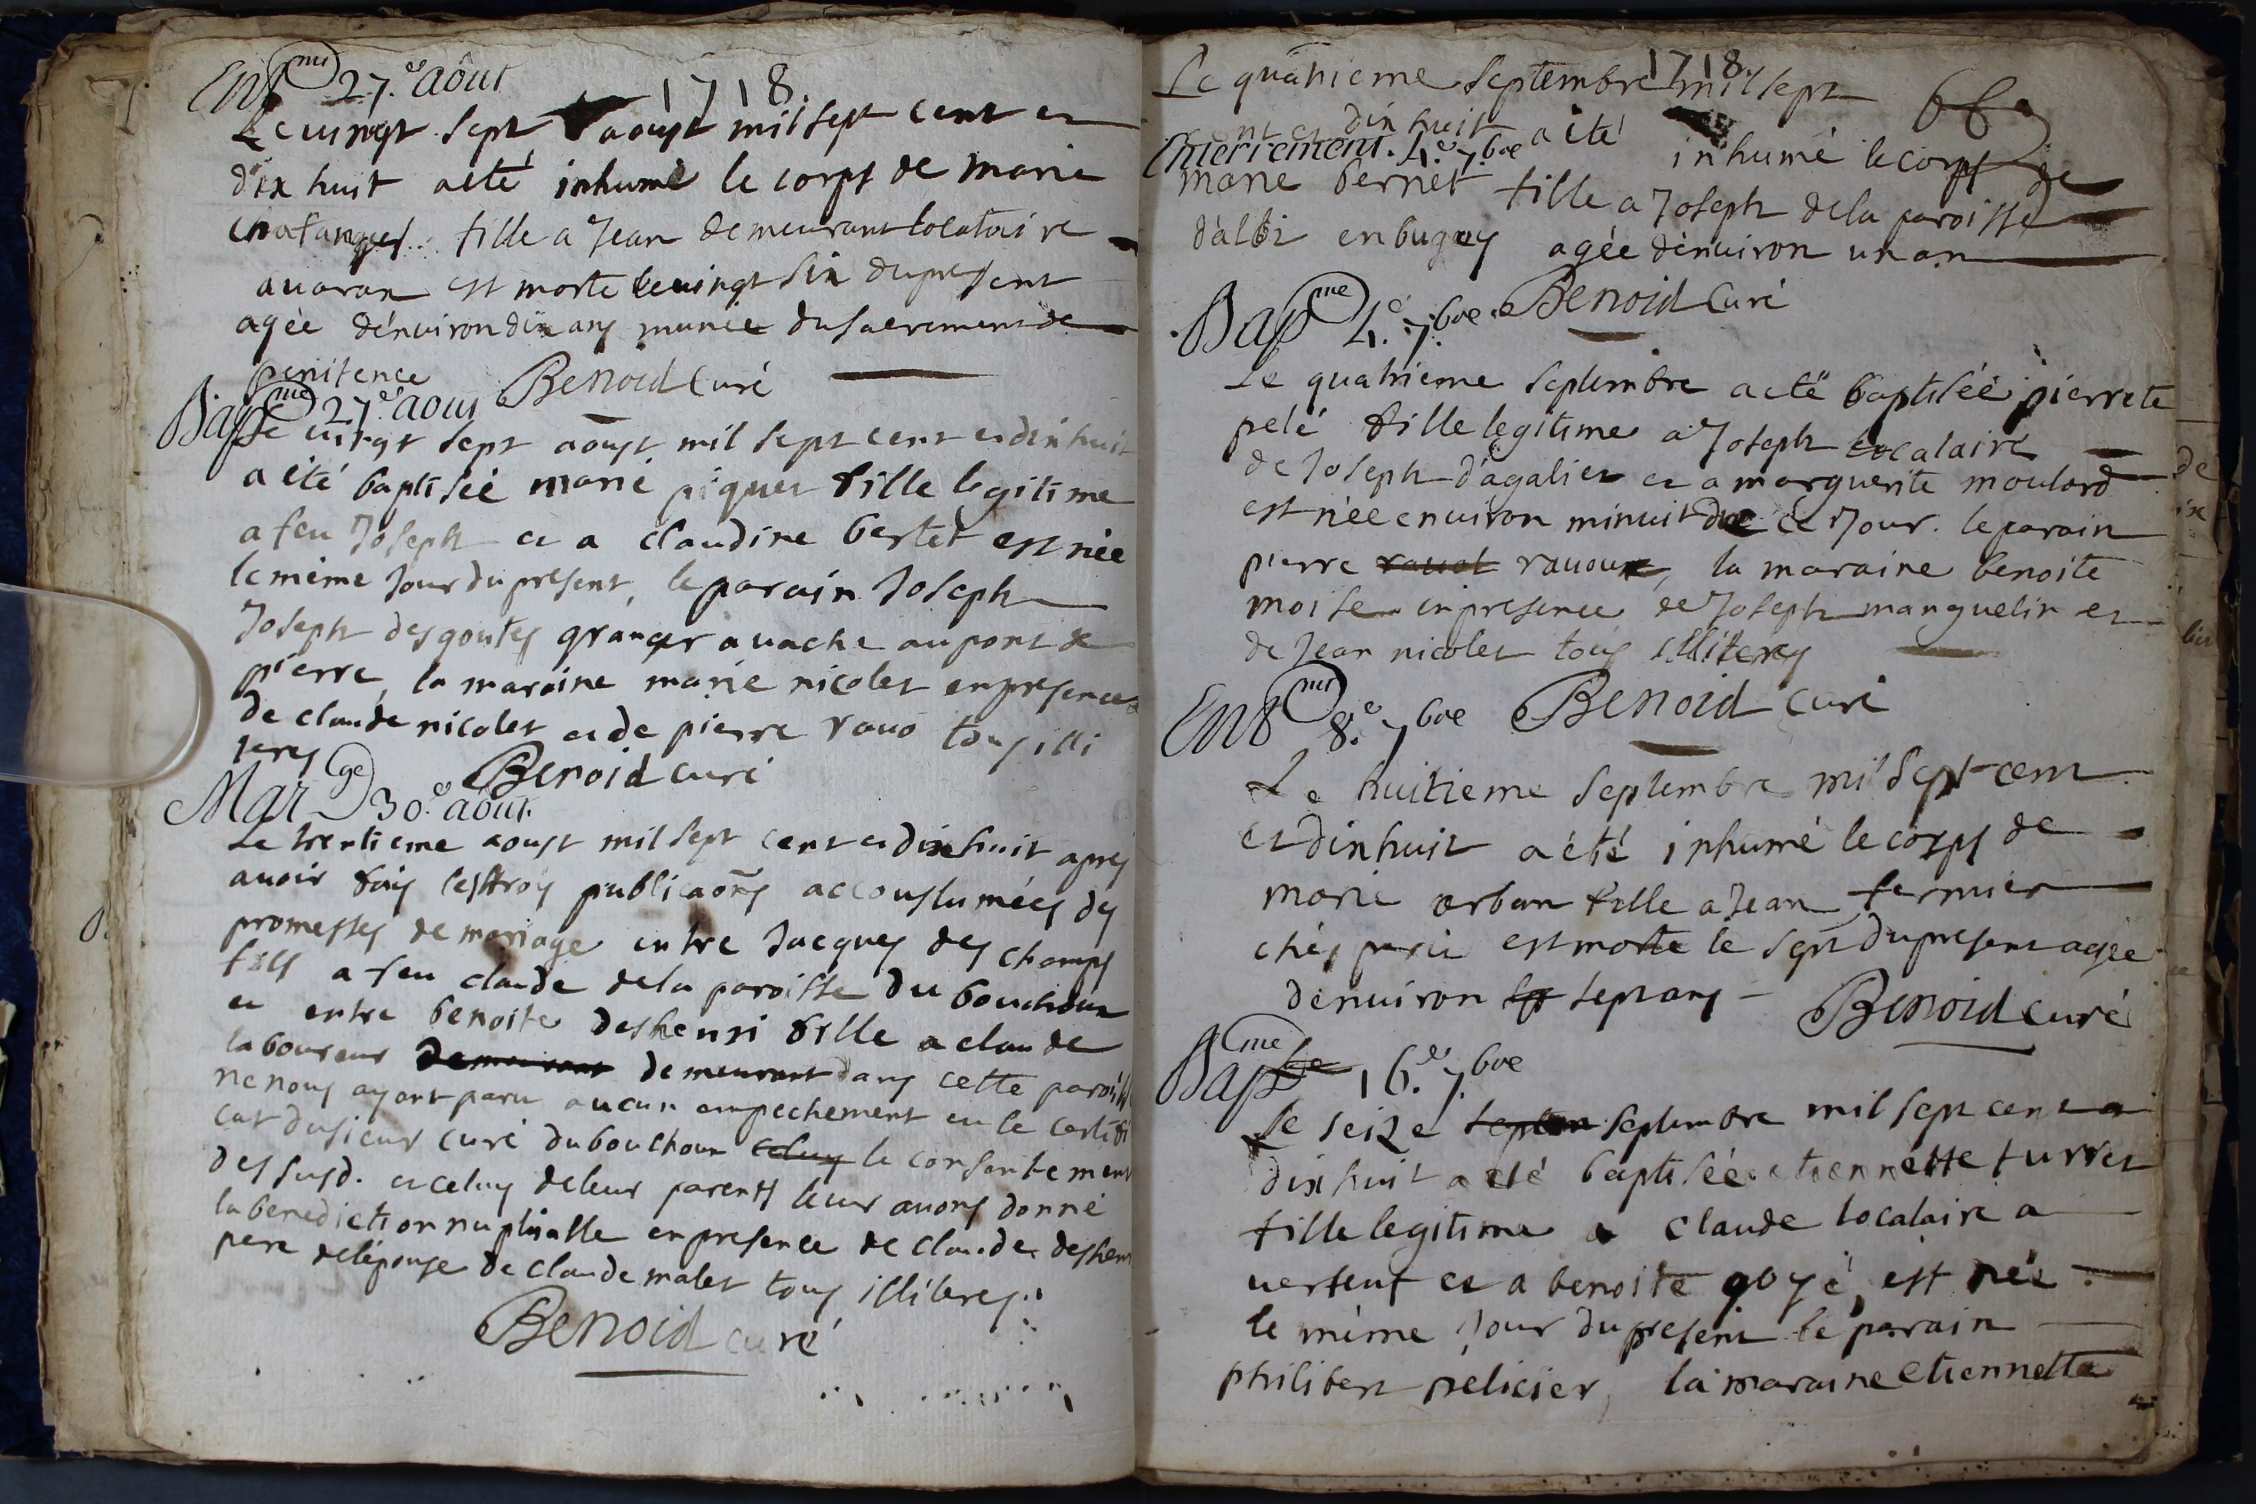 Ent.mt 27.e août
1718.
Le vingt sept aoust mil sept cent et
dix huit a eté inhumé le corps de marie
fille a Jean demeurant locataire
a varan est morte le vingt six du present
agée d'énviron dix ans munie du sacrement de
penitence Benoid Curé
Bap.me 27.e aout
Le vingt sept aoust mil sept cent et dix huit
a eté baptisée marie piquet fille legitime
a feu Joseph et a claudine bertet est née
le méme Jour du present, le parain Joseph
Joseph desgoutes granger a vache au pont de
pierre, la maraine marie nicolet en presence
de claude nicolet et de pierre vavo tous illi
teres Benoid curé
Mar.ge 30.e août.
Le trentieme aoust mil sept cent et dix huit apres
avoir fais les trois publicaons accoustumées des
promesses de mariage entre Jacques des champs
fils a feu claude de la paroisse du bouchoux
et entre benoite deshenri fille a claude
laboureur demeurant demeurant dans cette paroisse
ne nous ayant paru aucun ampechement eu le certifi
cat du sieur curé du bouchoux celuy le consentement
des susd. et celuy de leur parents leur avons donné
la benediction nuptialle en presence de claude deshenri
pere de l'épouse de claude malet tous illiteres.
Benoid curé
1718.
66
Le quatrieme septembre mil sept
cent et dix huit a eté inhumé le corps de
Enterrement. 4.e 7.bre
marie bernet fille a Joseph de la paroisse
d'albi en bugey agée dénviron un an
Benoid Curé
Bap.me 4.e 7.bre
Le quatrieme septembre a eté baptisée pierrete
pelé fille legitime a Joseph locataire
de Joseph d'agalier et a marguerite moulard
est née environ minuit de ce Jour. le parain
pierre ravat ravoux, la maraine benoite
moise en presence de Joseph manguelin et
de Jean nicolet tous illiteres
Ent.mt 8.e 7.bre Benoid Curé
Le huitieme septembre mil sept cent
et dix huit a eté inhumé le corps de
marie orban fille a Jean fermier
chés est morte le sept du present agée
denviron sept ans Benoid curé
Bap.me 16.e 7.bre
Le seize septem septembre mil sept cent et
dix huit a eté baptisée etiennette turret
fille legitime a claude locataire a
verseuf et a benoite goyé, est née
le méme Jour du present le parain
philibert pelicier, la maraine etiennette